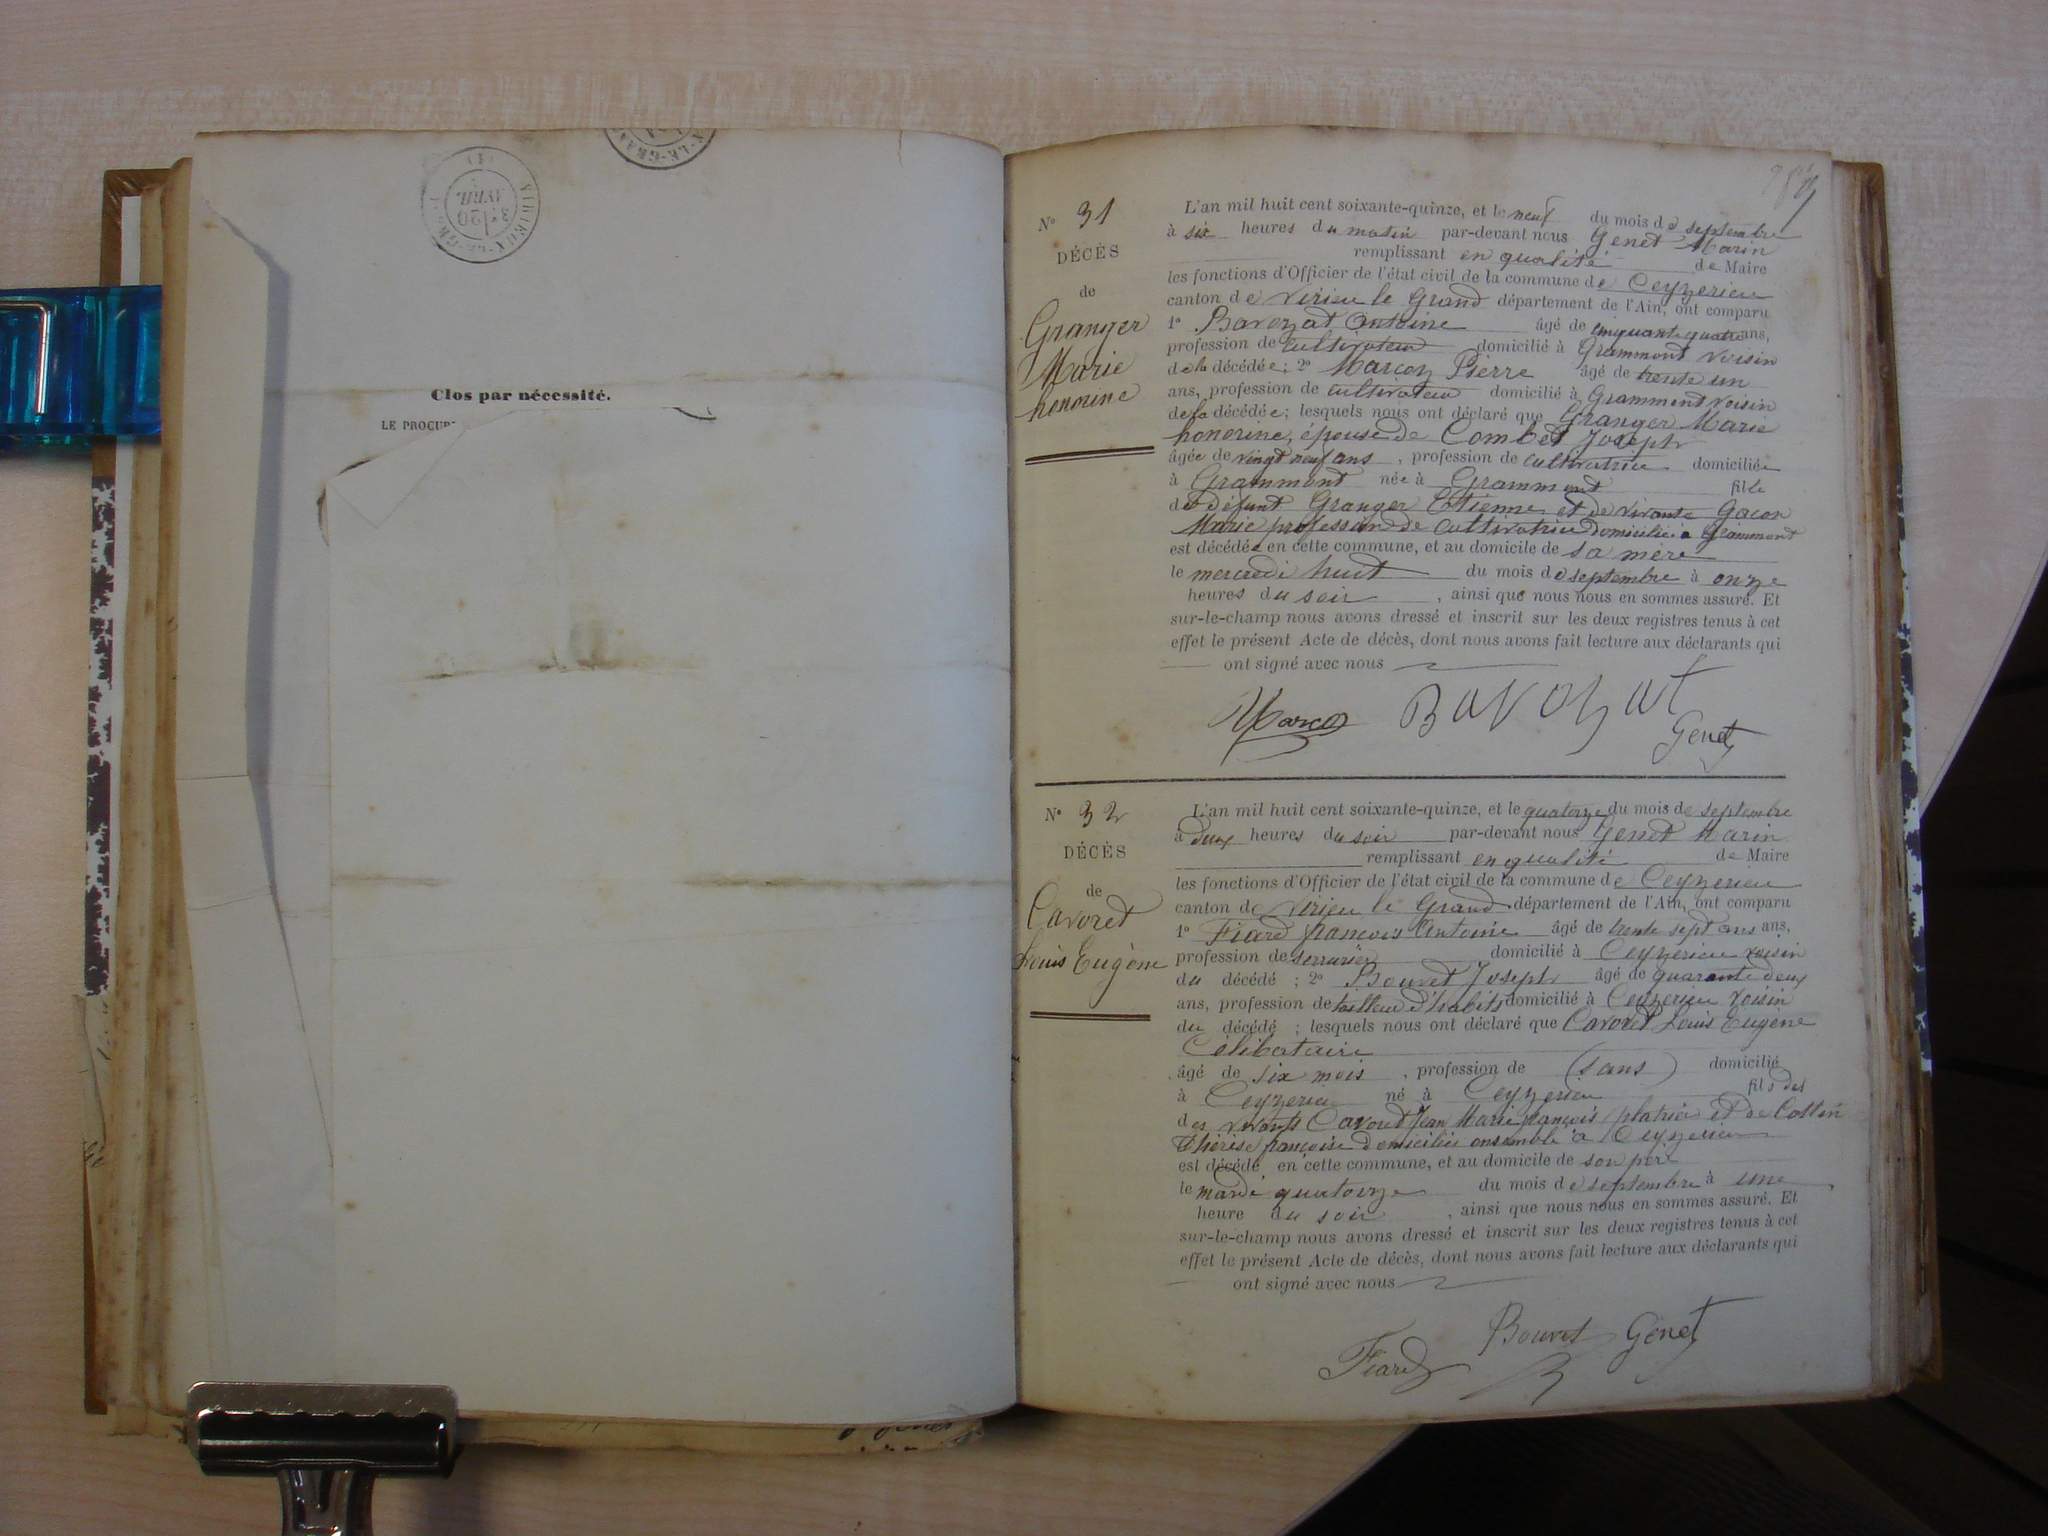 VIRIEUX-LE-GR
20
AVRIL
X-LE-GRAN
Clos par nécessité.
LE PROCUR
N° 31
DÉCÈS
de
Granger
Marie
honorine
L'an mil huit cent soixante-quinze, et le neuf du mois de septembre
à six heures du matin par-devant nous Genet Marin
remplissant en qualité de Maire
les fonctions d'Officier de l'état civil de la commune de Ceyzerieu
canton de Virieu le Grand département de l'Ain, ont comparu
1° Bavozat Antoine âgé de cinquante quatre ans,
profession de cultivateur domicilié à Grammont voisin
de la décédée; 2° Marcon Pierre âgé de trente un
ans, profession de cultivateur domicilié à Grammont voisin
de la décédée; lesquels nous ont déclaré que Granger Marie
honorine, épouse de Combet Joseph
âgée de vingt neuf ans, profession de cultivatrice domiciliée
à Grammont née à Grammont fille
de Défunt Granger Etienne et de vivante Gacon
Marie profession de cultivatrice domiciliée a Grammont
est décédée en cette commune, et au domicile de sa mère
le mercredi huit du mois de septembre à onze
heures du soir, ainsi que nous nous en sommes assuré. Et
sur-le-champ nous avons dressé et inscrit sur les deux registres tenus à cet
effet le présent Acte de décès, dont nous avons fait lecture aux déclarants qui
ont signé avec nous
Marcon Bavozat
Genet
N° 32
DÉCÈS
de
Cavoret
Louis Eugène
L'an mil huit cent soixante-quinze, et le quatorze du mois de septembre
à deux heures du soir par-devant nous Genet Marin
remplissant en qualité de Maire
les fonctions d'Officier de l'état civil de la commune de Ceyzerieu
canton de Virieu le Grand département de l'Ain, ont comparu
1° Fiard françois Antoine âgé de trente sept ans ans,
profession de serrurier domicilié à Ceyzerieu voisin
du décédé; 2° Bouvet Joseph âgé de quarante deux
ans, profession de tailleur d'habits domicilié à Ceyzerieu voisin
du décédé; lesquels nous ont déclaré que Cavoret Louis Eugène
Célibataire
âgé de six mois, profession de (sans) domicilié
à Ceyzerieu né à Ceyzerieu fils des
des vivants Cavoret Jean Marie françois platrier et de Cottin
Thérèse françoise domiciliés ensemble à Ceyzerieu
est décédé en cette commune, et au domicile de son père
le mardi quatorze du mois de septembre à une
heure du soir, ainsi que nous nous en sommes assuré. Et
sur-le-champ nous avons dressé et inscrit sur les deux registres tenus à cet
effet le présent Acte de décès, dont nous avons fait lecture aux déclarants qui
ont signé avec nous
Bouvet Genet
Fiard